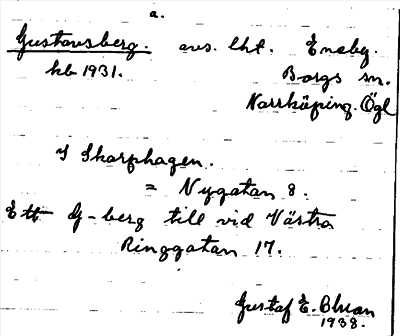 a.
Gustavsberg. avs. lht. Eneby.
hb 1931. Borgs sn.
Norrköping. Ögl
I Skarphagen.
= Nygatan 8.
Ett G-berg till vid Västra
Ringgatan 17.
Gustaf E. Blman
1938.